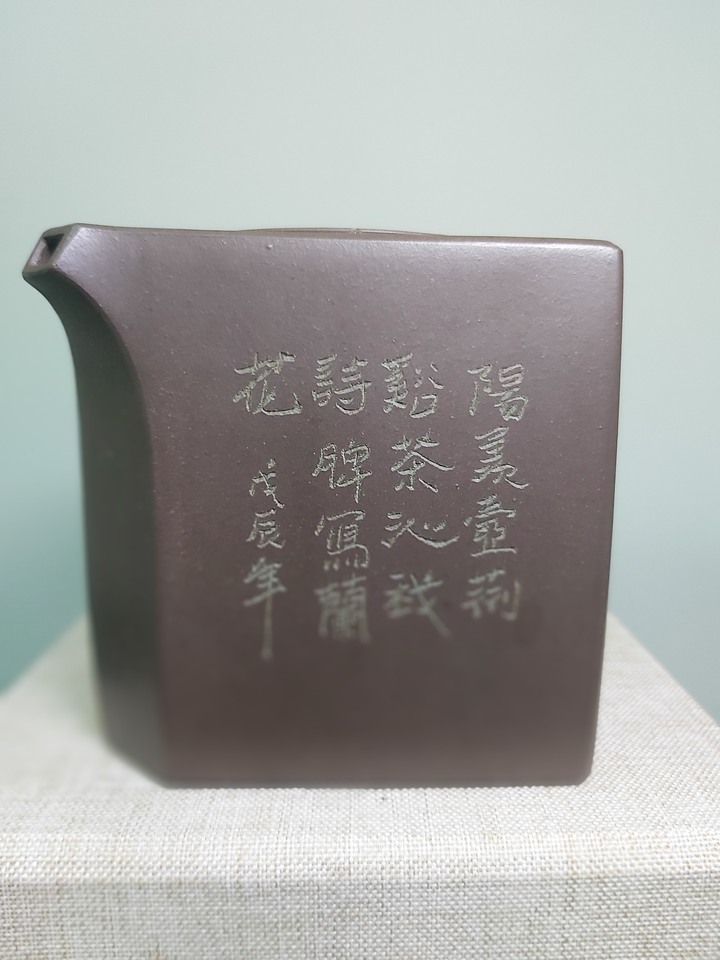 陽羨壺荊
谿茶沁我
詩脾寫蘭
花
戊辰年